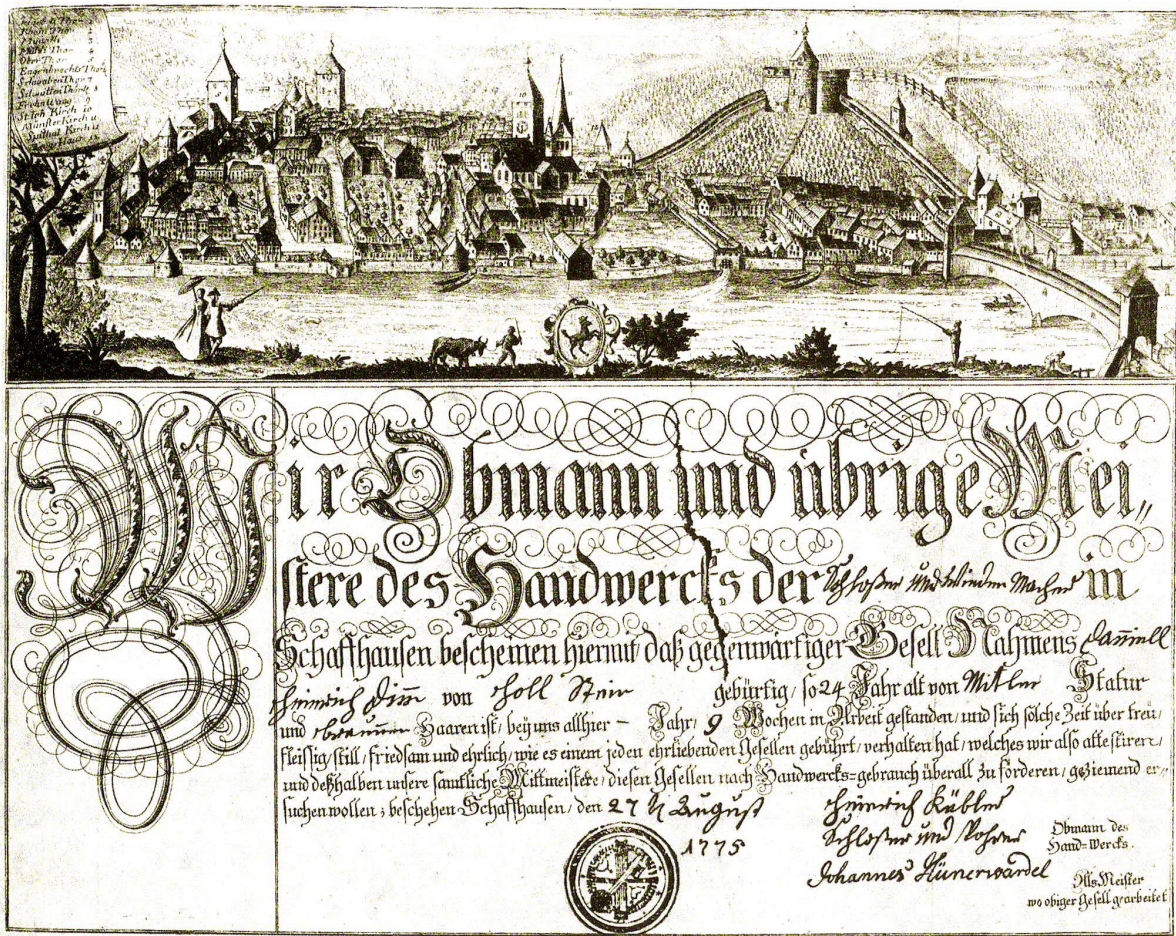 Ober Thor
Schwaben Thor 7
St. Joh. Kirch 10
Münster Kirch 11
Wir Obmann und übrige Mei„
stere des Handwercks der Schloßer und Winden Macher in
Schaffhausen bescheinen hiermit daß gegenwärtiger Gesell Nahmens Daniell
Heinrich von Holl Stein gebürtig / so 24 Jahr alt von Mitler Statur
und braunen Haaren ist / bey uns allhier – Jahr / 9 Wochen in Arbeit gestanden / und sich solche Zeit über treu /
fleissig / still / friedsam und ehrlich / wie es einem jeden ehrliebenden Gesellen gebührt / verhalten hat / welches wir also attestiren /
und deßhalben unsere samtliche Mittmeistere / diesen Gesellen nach Handwercks=gebrauch überall zu förderen / geziemend er„
suchen wollen ; beschehen Schaffhausen / den 27 August
1775
Heinrich
Schloßer und
Obmann des
Hand=Wercks.
Johannes Hünerwardel
Als Meister
wo obiger Gesell gearbeitet